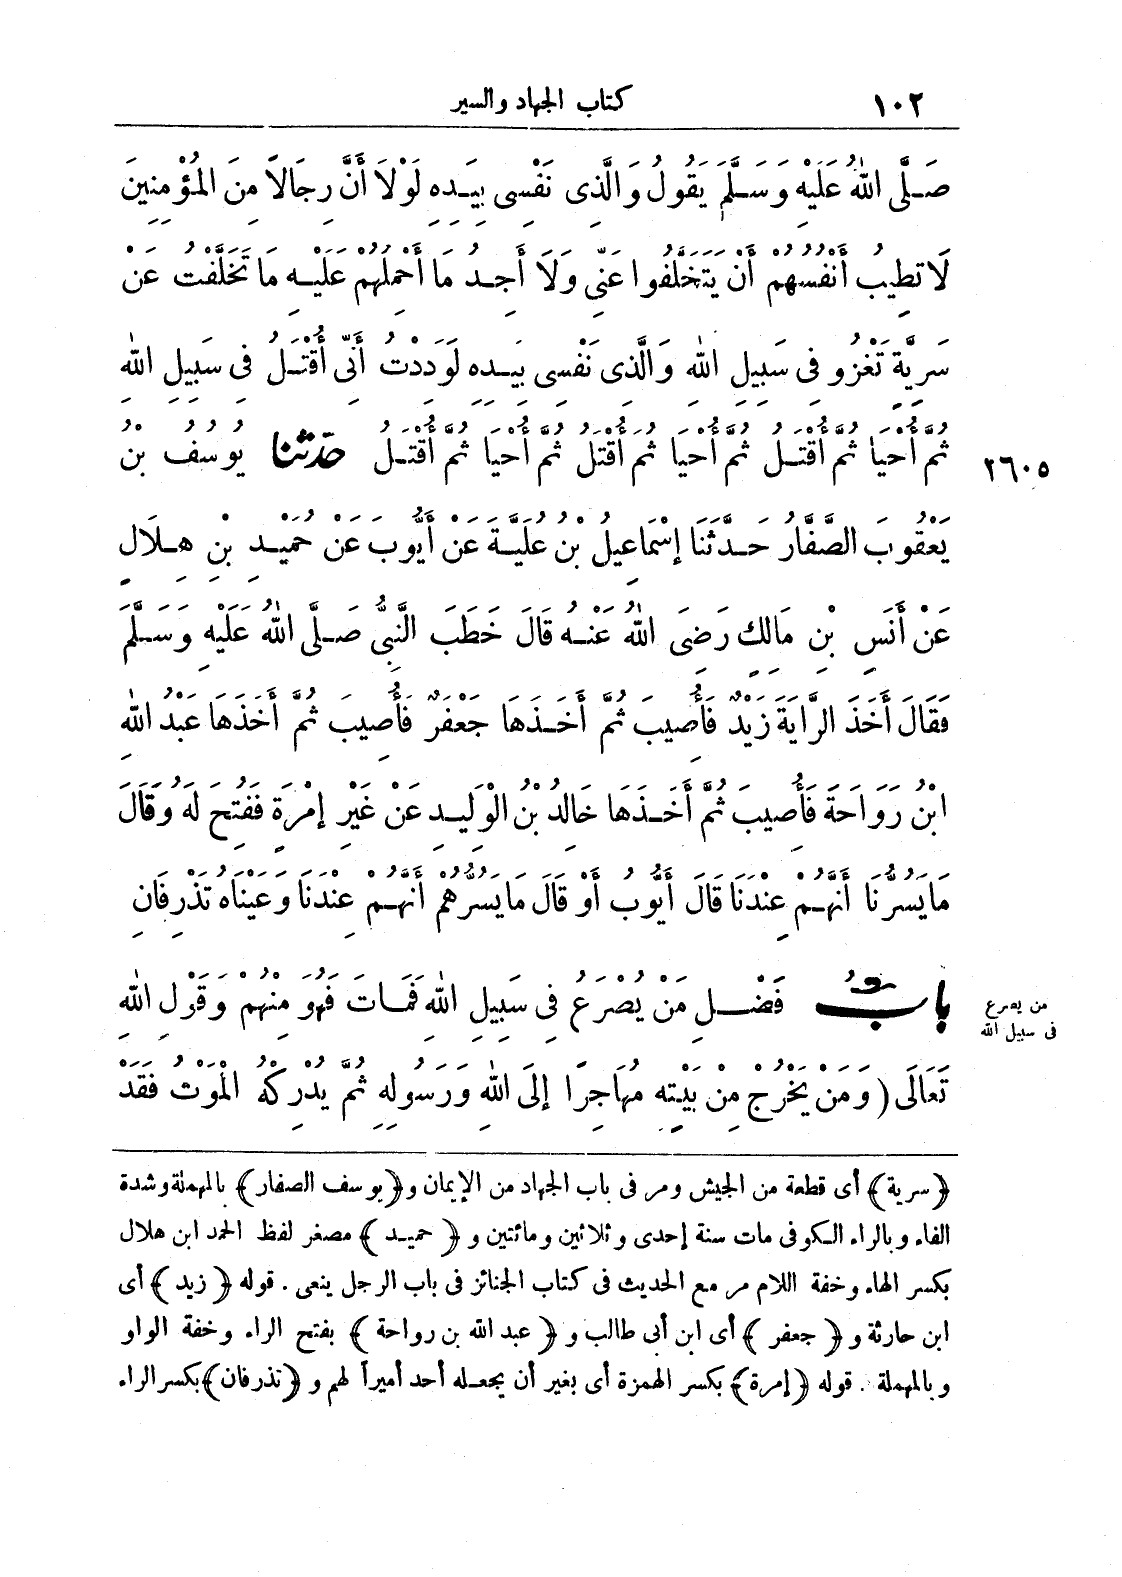 ١٠٢ كتاب الجهاد والسير
صَلَّى اللهُ عَلَيْهِ وَسَلَّمَ يَقُولُ وَالَّذِى نَفْسِى بِيَدِهِ لَوْلَا أَنَّ رِجَالًا مِنَ الْمُؤْمِنِينَ
لَا تَطِيبُ أَنْفُسُهُمْ أَنْ يَتَخَلَّفُوا عَنِّى وَلَا أَجِدُ مَا أَحْمِلُهُمْ عَلَيْهِ مَا تَخَلَّفْتُ عَنْ
سَرِيَّةٍ تَغْزُو فِى سَبِيلِ اللهِ وَالَّذِى نَفْسِى بِيَدِهِ لَوَدِدْتُ أَنِّى أُقْتَلُ فِى سَبِيلِ اللهِ
ثُمَّ أُحْيَا ثُمَّ أُقْتَلُ ثُمَّ أُحْيَا ثُمَّ أُقْتَلُ ثُمَّ أُحْيَا ثُمَّ أُقْتَلُ حَدَّثَنَا يُوسُفُ بْنُ
٢٦٠٥
يَعْقُوبَ الصَّفَّارُ حَدَّثَنَا إِسْمَاعِيلُ بْنُ عُلَيَّةَ عَنْ أَيُّوبَ عَنْ حُمَيْدِ بْنِ هِلَالٍ
عَنْ أَنَسِ بْنِ مَالِكٍ رَضِىَ اللهُ عَنْهُ قَالَ خَطَبَ النَّبِىُّ صَلَّى اللهُ عَلَيْهِ وَسَلَّمَ
فَقَالَ أَخَذَ الرَّايَةَ زَيْدٌ فَأُصِيبَ ثُمَّ أَخَذَهَا جَعْفَرٌ فَأُصِيبَ ثُمَّ أَخَذَهَا عَبْدُ اللهِ
ابْنُ رَوَاحَةَ فَأُصِيبَ ثُمَّ أَخَذَهَا خَالِدُ بْنُ الْوَلِيدِ عَنْ غَيْرِ إِمْرَةٍ فَفُتِحَ لَهُ وَقَالَ
مَا يَسُرُّنَا أَنَّهُمْ عِنْدَنَا قَالَ أَيُّوبُ أَوْ قَالَ مَا يَسُرُّهُمْ أَنَّهُمْ عِنْدَنَا وَعَيْنَاهُ تَذْرِفَانِ
بَابُ فَضْلِ مَنْ يُصْرَعُ فِى سَبِيلِ اللهِ فَمَاتَ فَهُوَ مِنْهُمْ وَقَوْلِ اللهِ
من يصرع
فى سبيل الله
تَعَالَى (وَمَنْ يَخْرُجْ مِنْ بَيْتِهِ مُهَاجِرًا إِلَى اللهِ وَرَسُولِهِ ثُمَّ يُدْرِكْهُ الْمَوْتُ فَقَدْ
﴿سرية﴾ أى قطعة من الجيش ومر فى باب الجهاد من الإيمان و﴿يوسف الصفار﴾ بالمهملة وشدة
الفاء وبالراء الكوفى مات سنة إحدى وثلاثين ومائتين و﴿حميد﴾ مصغر لفظ الحمد ابن هلال
بكسر الهاء وخفة اللام مر مع الحديث فى كتاب الجنائز فى باب الرجل ينعى . قوله ﴿زيد﴾ أى
ابن حارثة و﴿جعفر﴾ أى ابن أبى طالب و﴿عبد الله بن رواحة﴾ بفتح الراء وخفة الواو
وبالمهملة . قوله ﴿إمرة﴾ بكسر الهمزة أى بغير أن يجعله أحد أميراً لهم و﴿تذرفان﴾ بكسر الراء